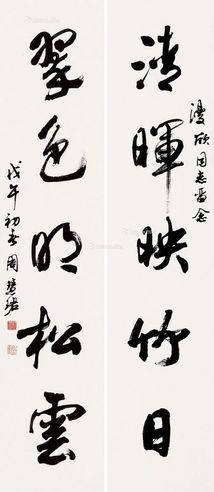 清暉映竹日
漫欣同志留念
翠色明松雲
戊午初冬周慧珺